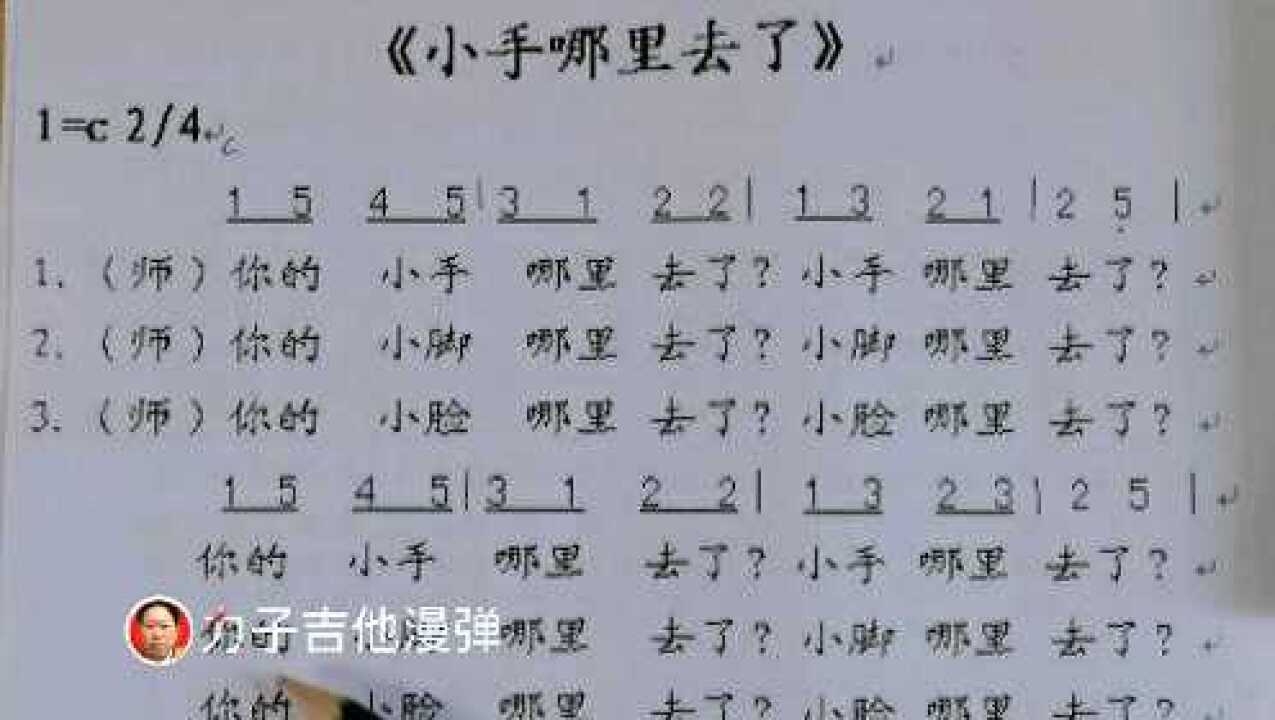 《小手哪里去了》
1=c 2/4
1 5 4 5 | 3 1 2 2 | 1 3 2 1 | 2 5 |
1. （师）你的 小手 哪里 去了？小手 哪里 去了？
2. （师）你的 小脚 哪里 去了？小脚 哪里 去了？
3. （师）你的 小脸 哪里 去了？小脸 哪里 去了？
1 5 4 5 | 3 1 2 2 | 1 3 2 3 | 2 5 |
你的 小手 哪里 去了？小手 哪里 去了？
子吉他漫弹
哪里 去了？小脚 哪里 去了？
你的 小脸 哪里 去了？小脸 哪里 去了？